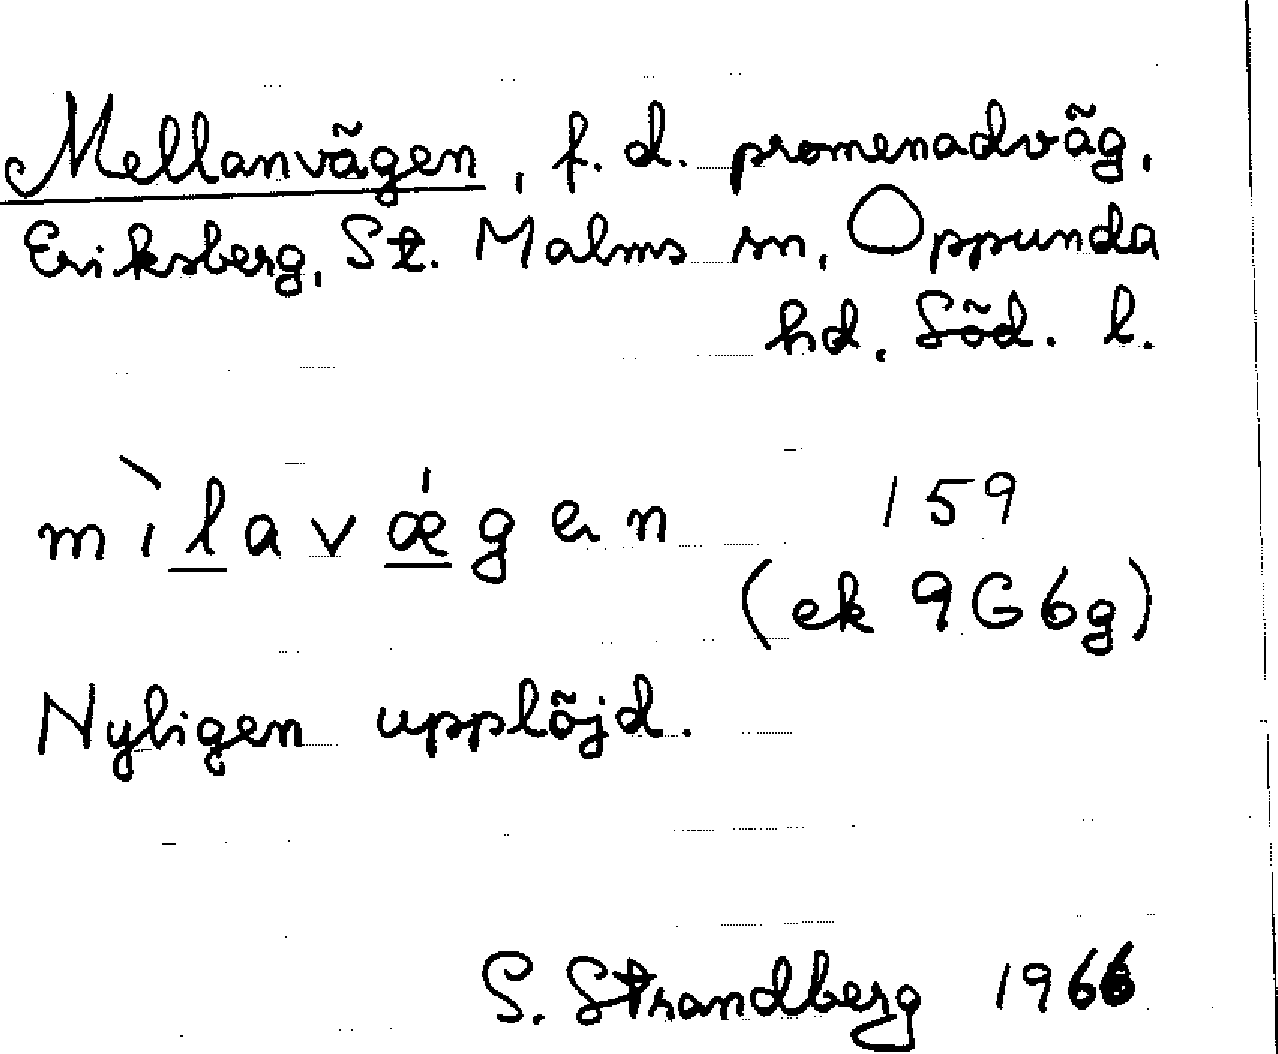 Mellanvägen, f.d. promenadväg,
Eriksberg, St. Malms sn, Oppunda
hd. Söd. l.
mìlavǽgen 159
(ek 9G6g)
Nyligen upplöjd.
S. Strandberg 1966